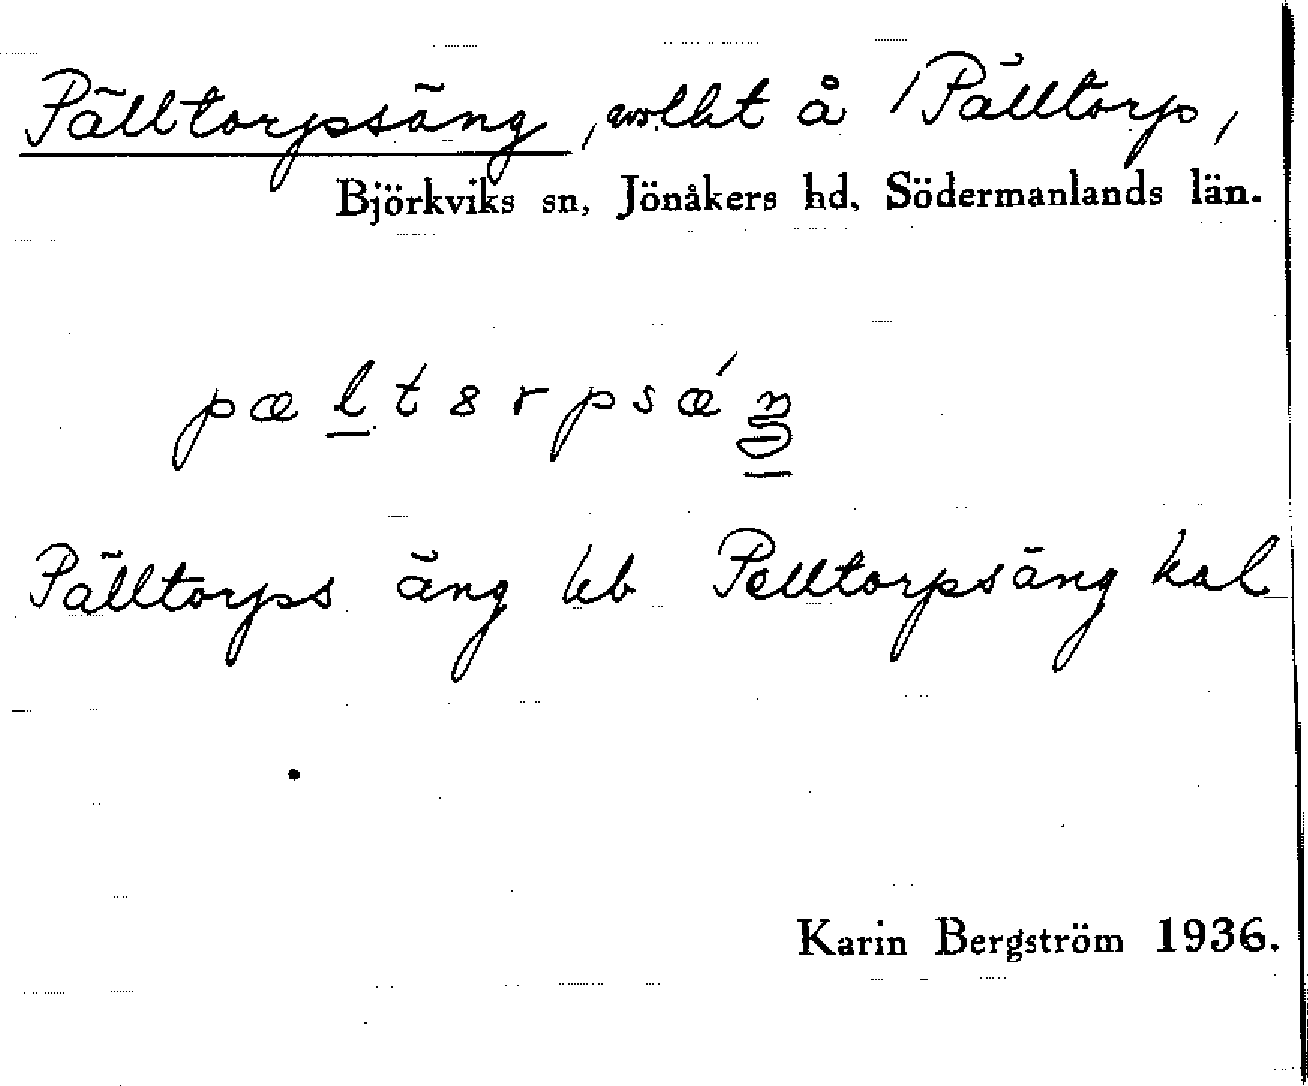 Pälltorpsäng, avs. lht å Pälltorp,
Björkviks sn, Jönåkers hd. Södermanlands län.
pæltɜrpsǽŋ
Pälltorps äng kb Pelltorpsäng hal
Karin Bergström 1936.